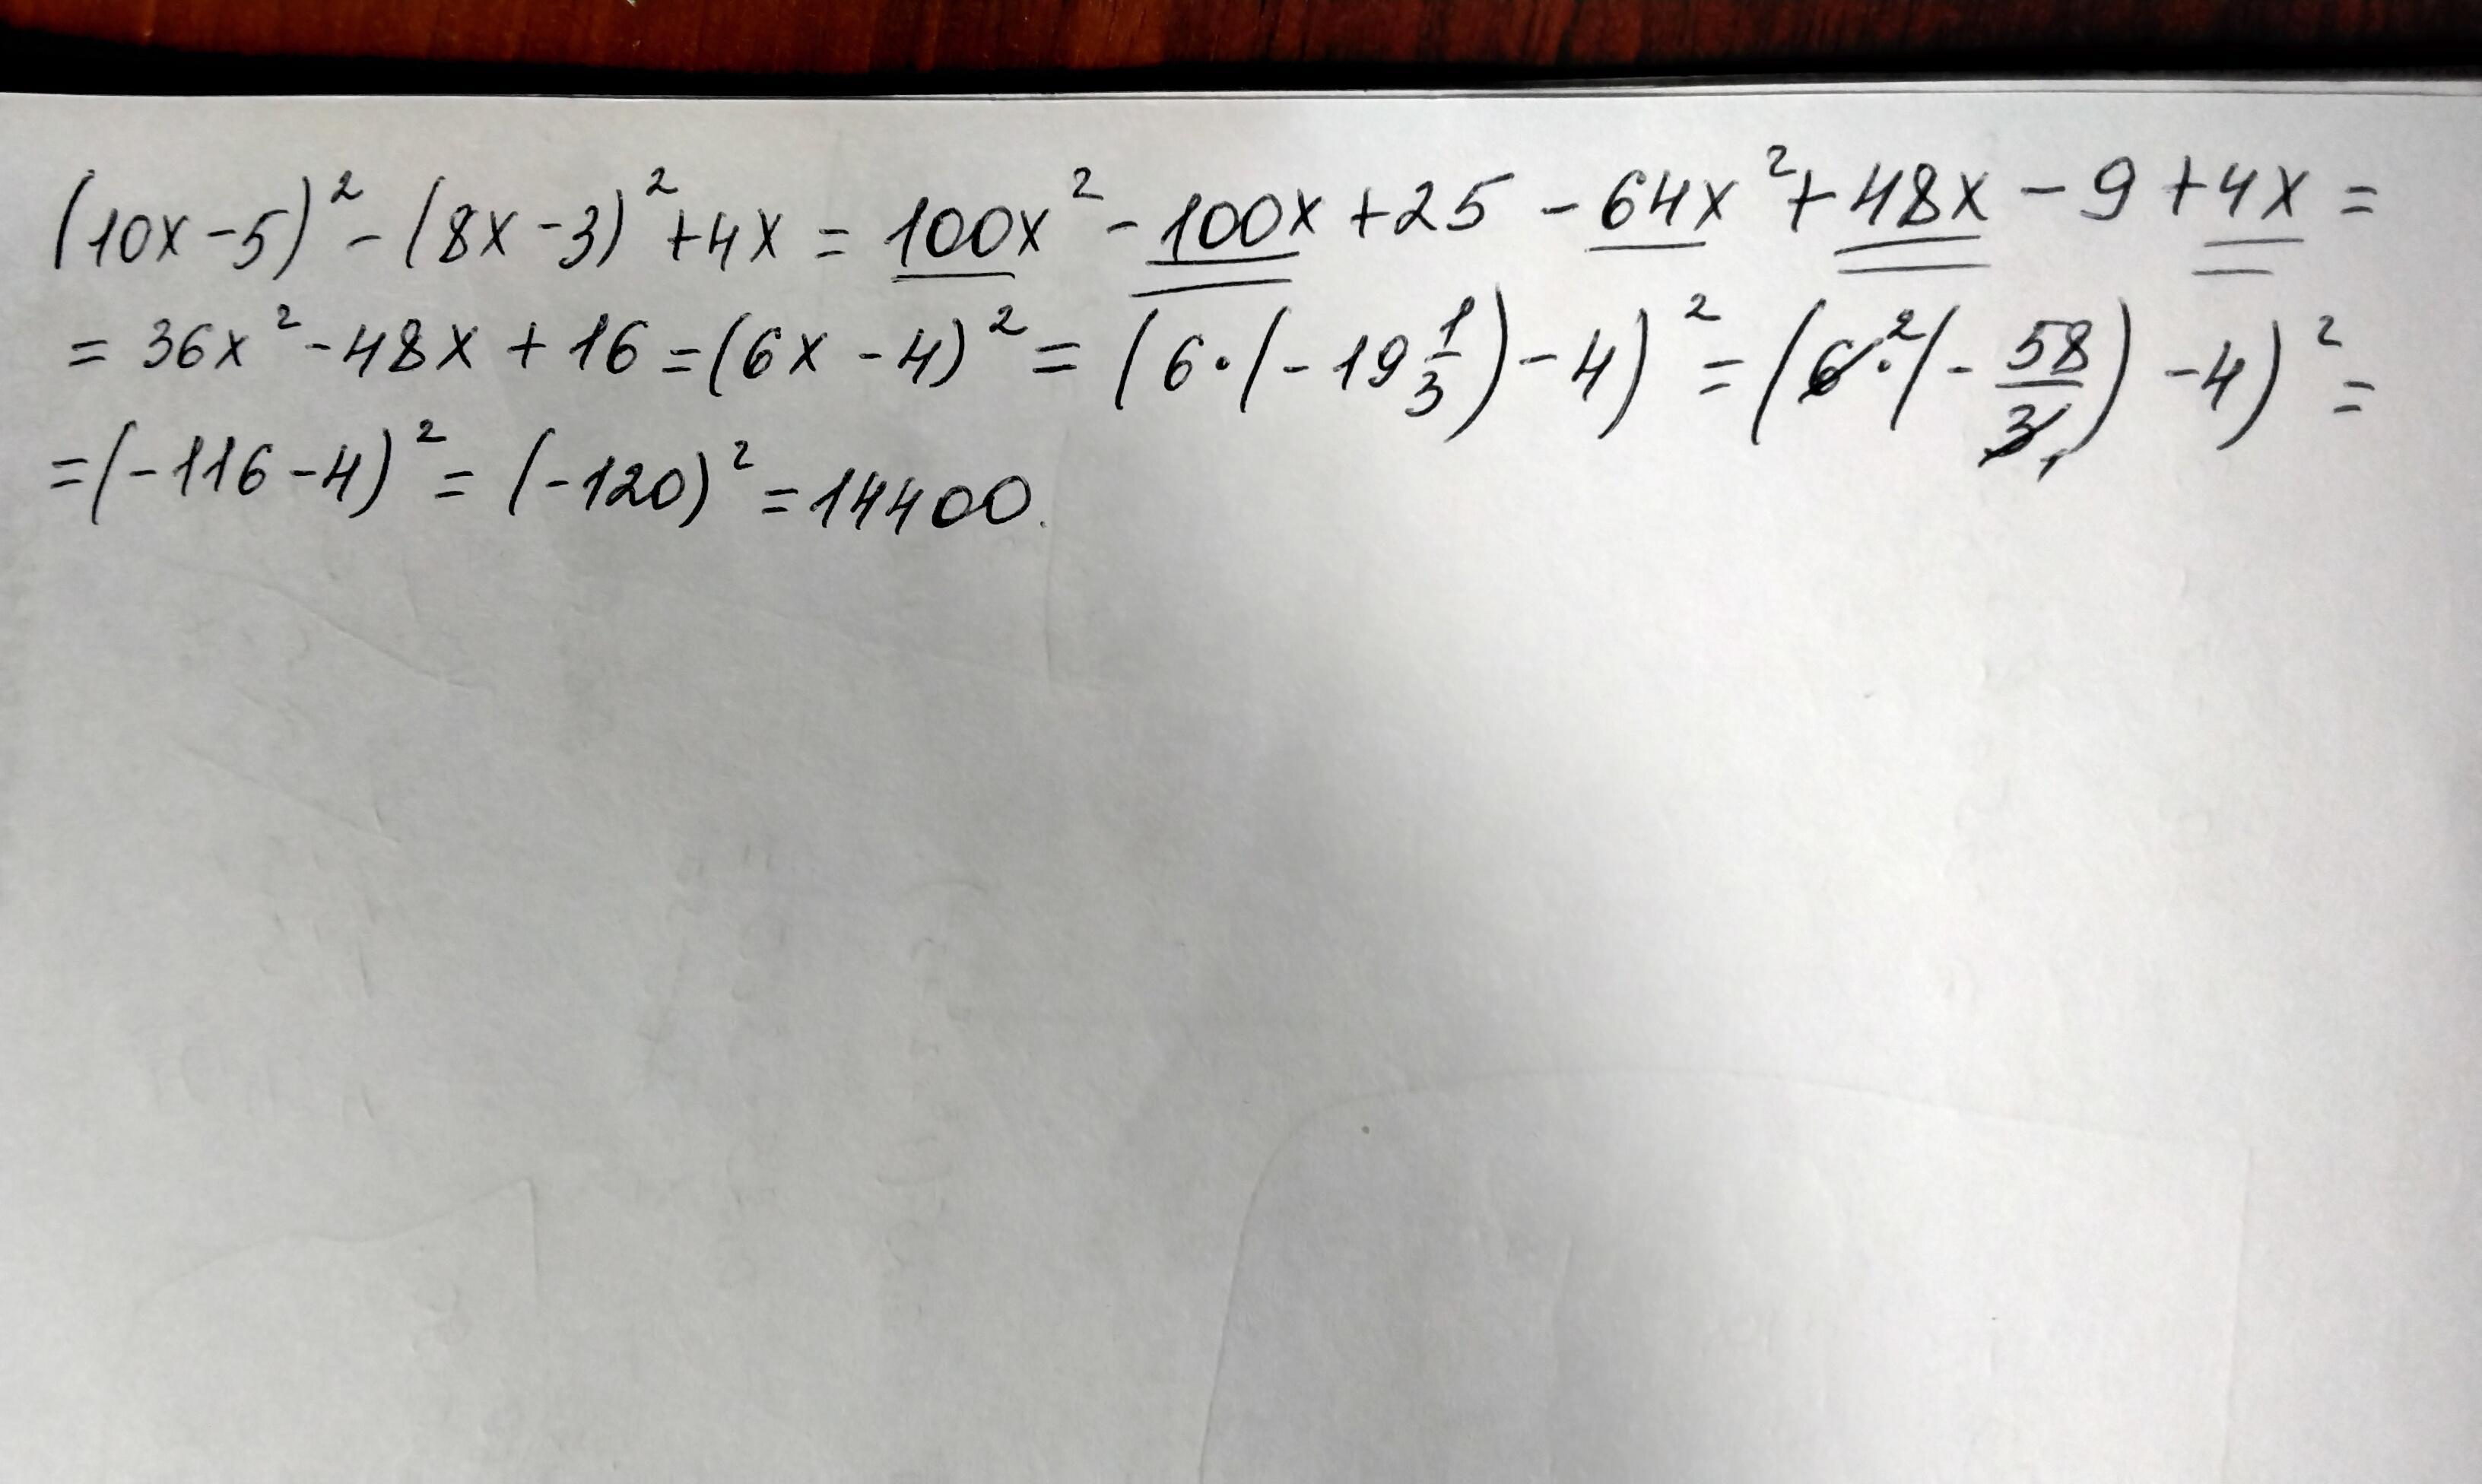 (10x-5)² - (8x-3)² + 4x = 100x² - 100x + 25 - 64x² + 48x - 9 + 4x =
= 36x² - 48x + 16 = (6x - 4)² = (6·(-19 1/3) - 4)² = (6²·(-58/3₁) - 4)² =
= (-116 - 4)² = (-120)² = 14400.